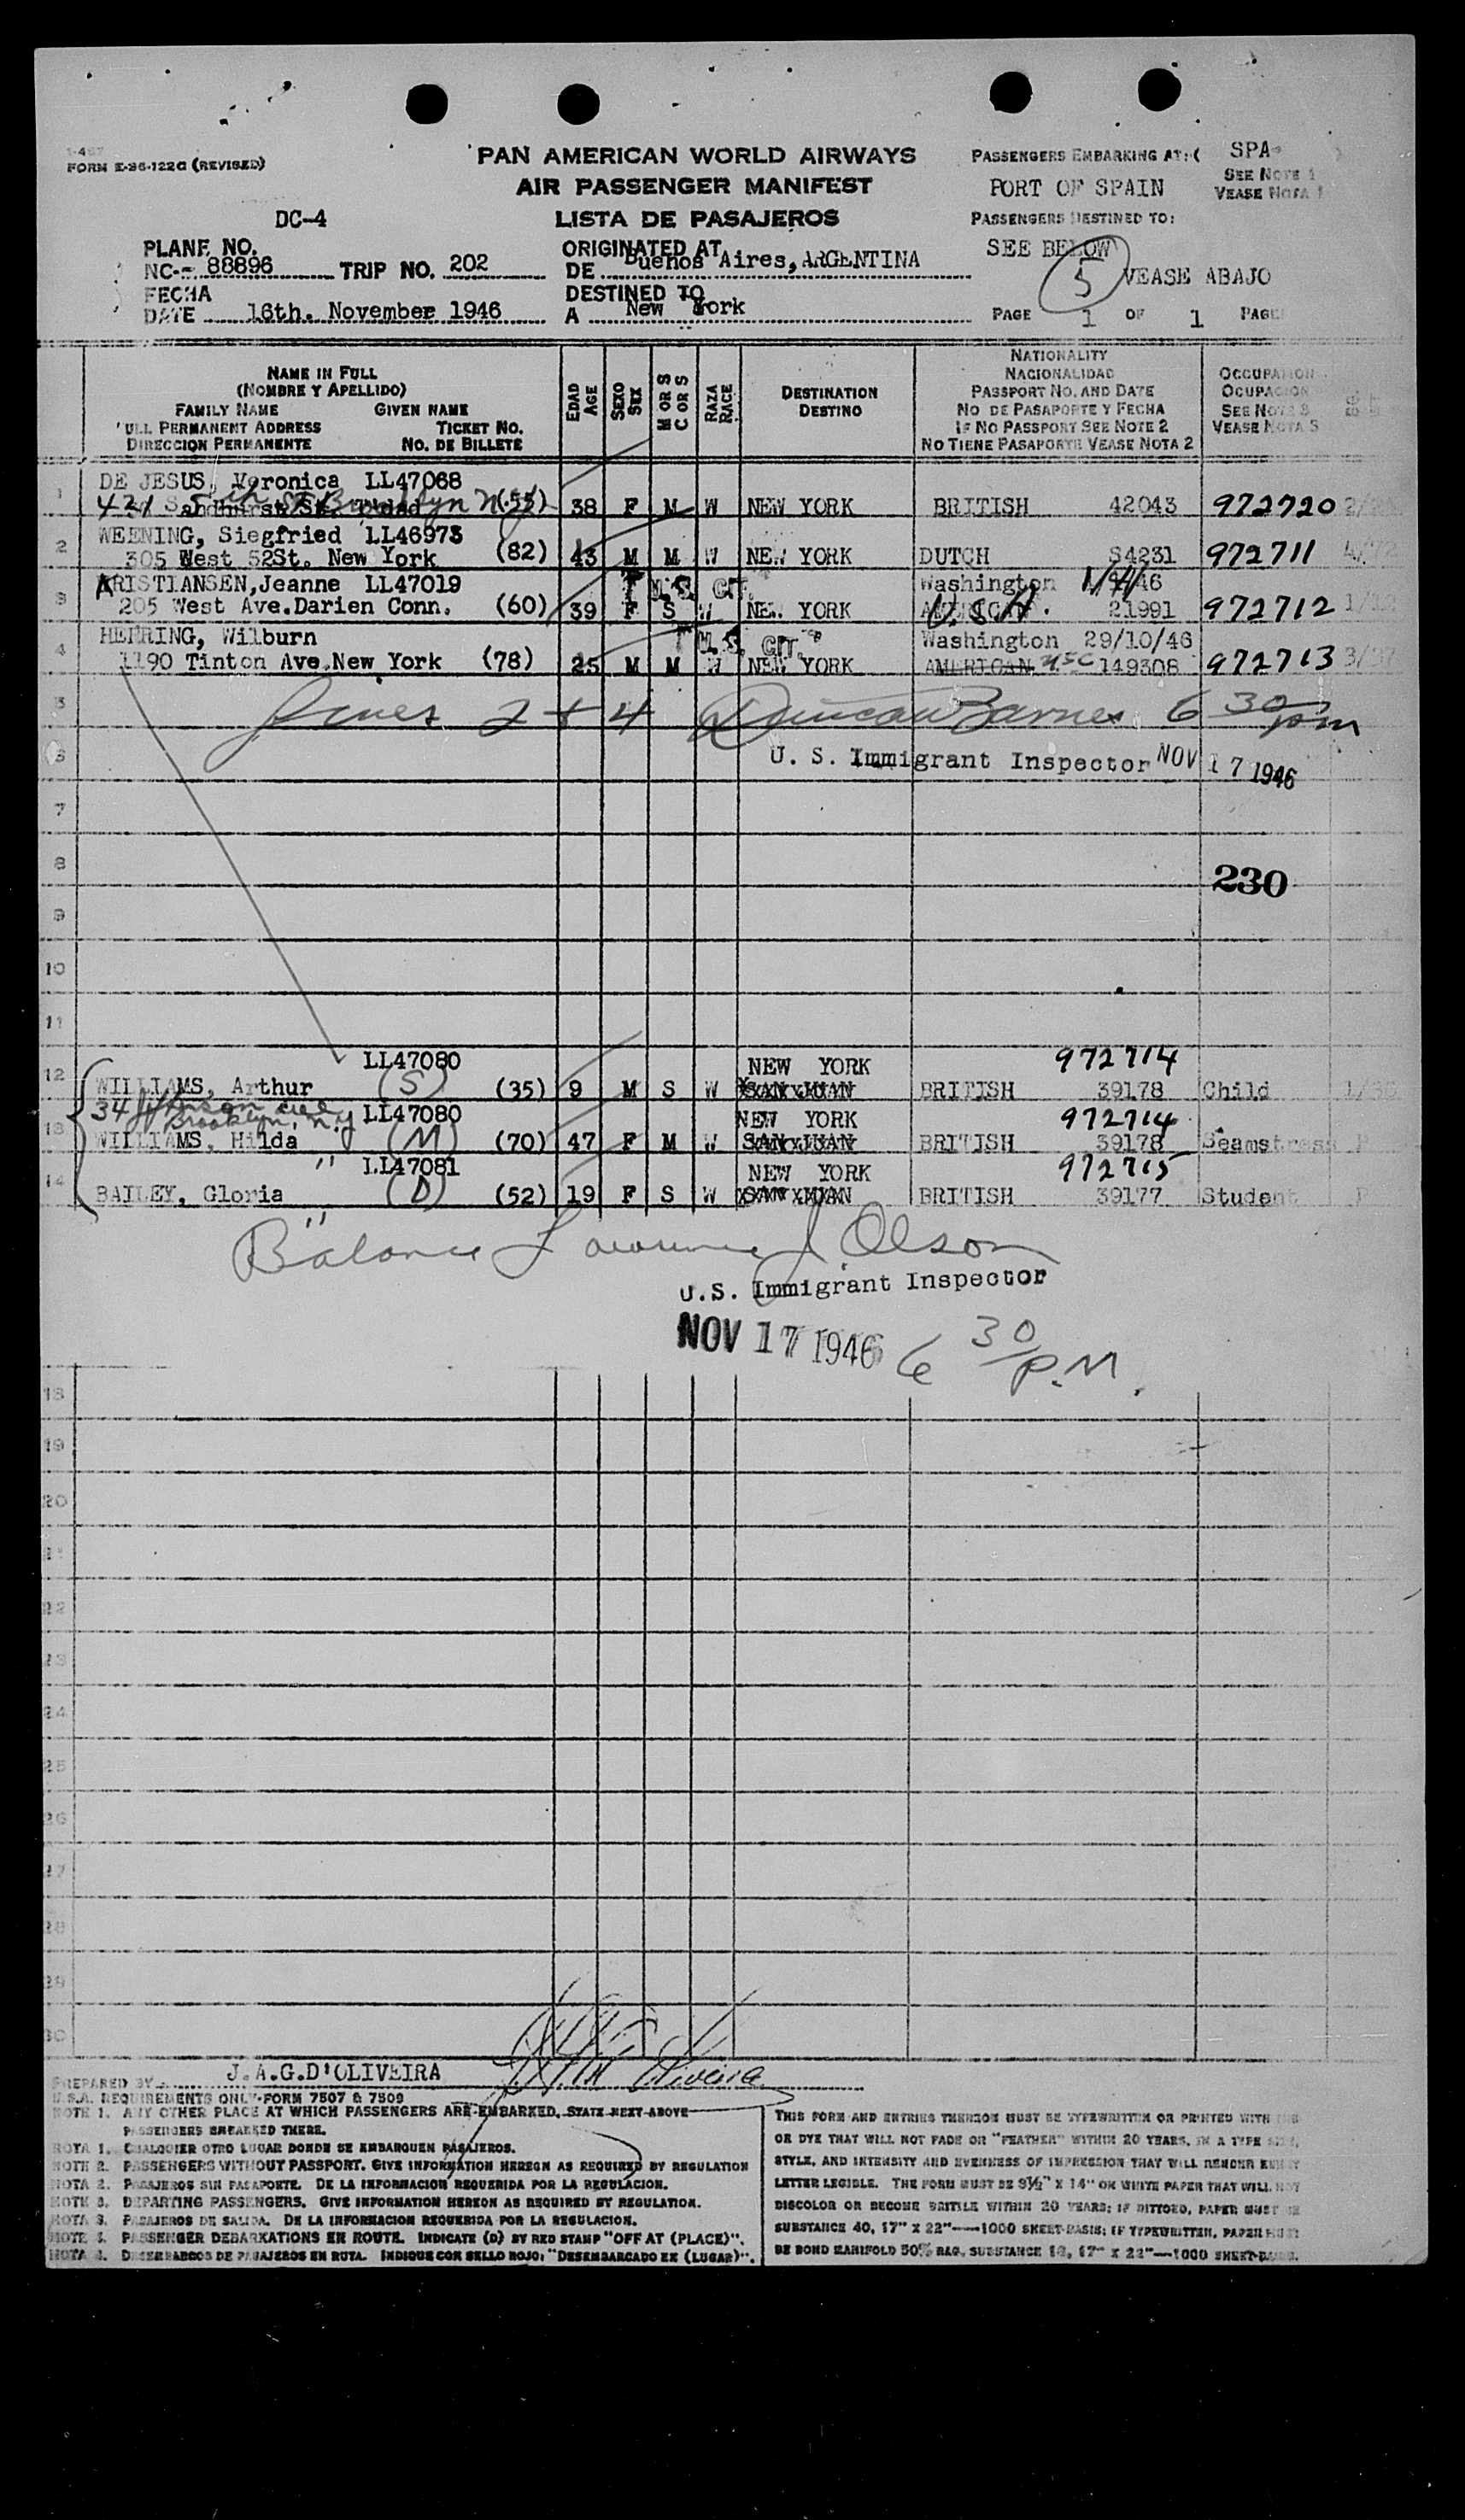 FORM E-96-122G (REVISED)
PAN AMERICAN WORLD AIRWAYS
AIR PASSENGER MANIFEST
LISTA DE PASAJEROS
PASSENGERS EMBARKING AT: ( SPA
SEE NOTE 1
VEASE NOTA 1
PORT OF SPAIN
PASSENGERS DESTINED TO:
SEE BELOW
5 VEASE ABAJO
PAGE 1 OF 1 PAGE
DC-4
PLANE NO.
NC-- 88896 TRIP NO. 202
FECHA
DATE 16th. November 1946
ORIGINATED AT
DE Buenos Aires, ARGENTINA
DESTINED TO
A New York
NAME IN FULL
(NOMBRE Y APELLIDO)
FAMILY NAME GIVEN NAME
FULL PERMANENT ADDRESS TICKET NO.
DIRECCION PERMANENTE NO. DE BILLETE
EDAD AGE
SEXO SEX
M OR S C OR S
RAZA RACE
DESTINATION
DESTINO
NATIONALITY
NACIONALIDAD
PASSPORT NO. AND DATE
NO DE PASAPORTE Y FECHA
IF NO PASSPORT SEE NOTE 2
NO TIENE PASAPORTE VEASE NOTA 2
OCCUPATION
OCUPACION
SEE NOTE 3
VEASE NOTA 3
1 DE JESUS, Veronica LL47068
421 Brooklyn N.Y. (55) 38 F M W NEW YORK BRITISH 42043 972720
2 WEENING, Siegfried LL46973
305 West 52St. New York (82) 43 M M W NEW YORK DUTCH S4231 972711
3 KRISTIANSEN, Jeanne LL47019 U.S. CIT. Washington 46
205 West Ave. Darien Conn. (60) 39 F S W NEW YORK U.S.A. 21991 972712
4 HERRING, Wilburn U.S. CIT. Washington 29/10/46
1190 Tinton Ave. New York (78) 25 M M W NEW YORK AMERICAN USC 149308 972713
5 Lines 2 + 4 Duncan Barnes 6 30 pm
6 U. S. Immigrant Inspector NOV 17 1946
7
8 230
9
10
11
LL47080 NEW YORK 972714
12 WILLIAMS, Arthur (S) (35) 9 M S W SAN JUAN BRITISH 39178 Child
34 Jefferson Ave Brooklyn, N.Y LL47080 NEW YORK 972714
13 WILLIAMS, Hilda (M) (70) 47 F M W SAN JUAN BRITISH 39178 Seamstress
" LL47081 NEW YORK 972715
14 BAILEY, Gloria (D) (52) 19 F S W SAN JUAN BRITISH 39177 Student
"
Balance Lawrence J Olson
U.S. Immigrant Inspector
NOV 17 1946 6 30 P.M.
18
19
20
21
22
23
24
25
26
27
28
29
30
PREPARED BY J.A.G.D'OLIVEIRA
U.S.A. REQUIREMENTS ONLY-FORM 7507 & 7509
NOTE 1. ANY OTHER PLACE AT WHICH PASSENGERS ARE EMBARKED, STATE NEXT ABOVE
PASSENGERS EMBARKED THERE.
NOTA 1. CUALQUIER OTRO LUGAR DONDE SE EMBARQUEN PASAJEROS.
NOTE 2. PASSENGERS WITHOUT PASSPORT. GIVE INFORMATION HEREON AS REQUIRED BY REGULATION
NOTA 2. PASAJEROS SIN PASAPORTE. DE LA INFORMACION REQUERIDA POR LA REGULACION.
NOTE 3. DEPARTING PASSENGERS. GIVE INFORMATION HEREON AS REQUIRED BY REGULATION.
NOTA 3. PASAJEROS DE SALIDA. DE LA INFORMACION REQUERIDA POR LA REGULACION.
NOTE 4. PASSENGER DEBARKATIONS EN ROUTE. INDICATE (D) BY RED STAMP "OFF AT (PLACE)".
NOTA 4. DESEMBARCOS DE PASAJEROS EN RUTA. INDIQUE CON SELLO ROJO: "DESEMBARCADO EN (LUGAR)".
THIS FORM AND ENTRIES THEREON MUST BE TYPEWRITTEN OR PRINTED WITH INK
OR DYE THAT WILL NOT FADE OR "FEATHER" WITHIN 20 YEARS, IN A TYPE SIZE,
STYLE, AND INTENSITY AND EVENNESS OF IMPRESSION THAT WILL RENDER EVERY
LETTER LEGIBLE. THE FORM MUST BE 8½" X 14" ON WHITE PAPER THAT WILL NOT
DISCOLOR OR BECOME BRITTLE WITHIN 20 YEARS; IF DITTOED, PAPER MUST BE
SUBSTANCE 40, 17" X 22"—1000 SHEET-BASIS; IF TYPEWRITTEN, PAPER MUST
BE BOND MANIFOLD 50% RAG, SUBSTANCE 18, 17" X 22"—1000 SHEET-BASIS.